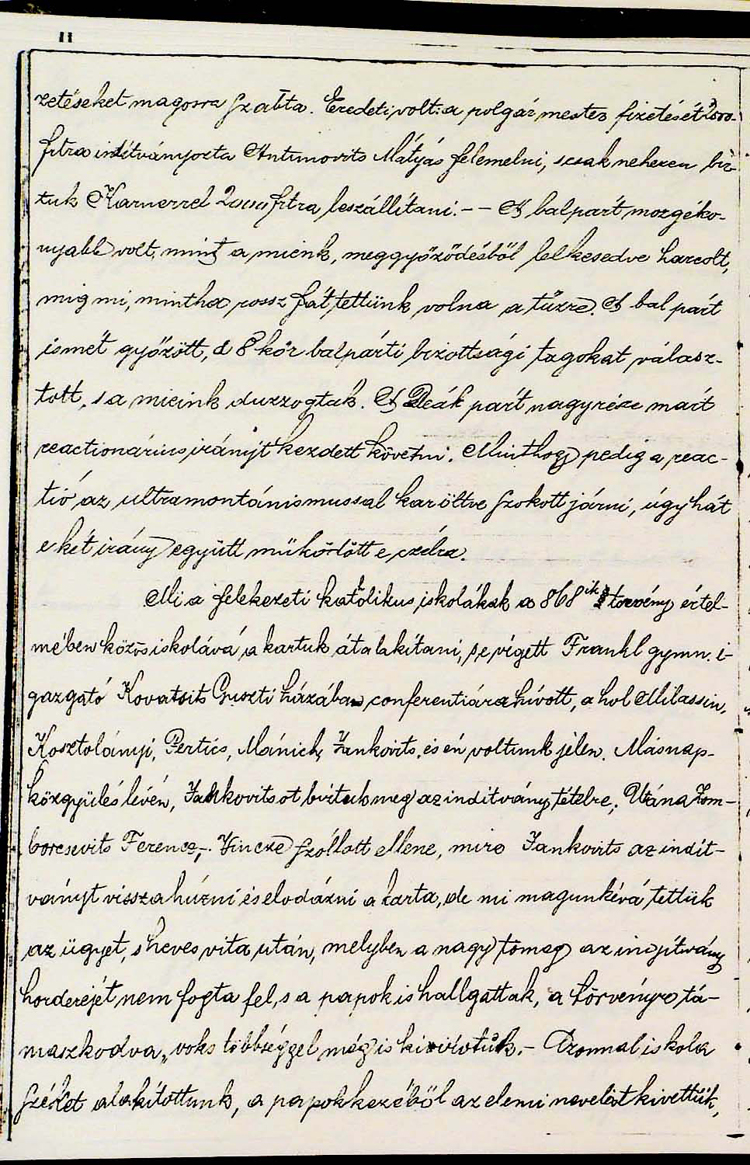 11
zetéseket magosra szabta. Eredeti volt: a polgármester fizetését
frtra indítványozta Antunovits Mátyás felemelni, s csak nehezen bír-
tuk Karnerrel 2000 frtra leszállítani. – – A balpárt mozgéko-
nyabb volt, mint a mieink, meggyőződésből lelkesedve harcolt,
mig mi, mintha rossz fát tettünk volna a tűzre. A bal párt
ismét győzött, s 8 kör balpárti bizottsági tagokat válasz-
tott, s a mieink duzzogtak. A Deák párt nagyrésze már
reactionárius irányt kezdett követni. Minthogy pedig a reac-
tió az ultramontánismussal karöltve szokott járni, úgy hát
e két irány együtt működött e czélra.
Mi a felekezeti katolikus iskolákak a 868ik törvény értel-
mében közös iskolává akartuk átalakítani, s e végett Frankl gymn. i-
gazgató Kovatsits Guszti házában conferentiára hívott, a hol Milassin,
Kosztolányi, Pertics, Mánich, Jankovits, és én voltunk jelen. Másnap-
közgyülés lévén, Jankovitsot bíztuk meg az indítvány tételre; Utána Zom-
borcsevits Ferencz,- Vincze szóllott ellene, mire Jankovits az indít-
ványt vissza húzni és elodázni akarta, de mi magunkévá tettük
az ügyet, s heves vita után, melyben a nagy tömeg az indítvány
horderejét nem fogta fel, s a papok is hallgattak, a törvényre tá-
maszkodva, voks többséggel még is kivívtuk. – Azonnal iskola
széket alakítottunk, a papok kezéből az elemi nevelést kivettük,